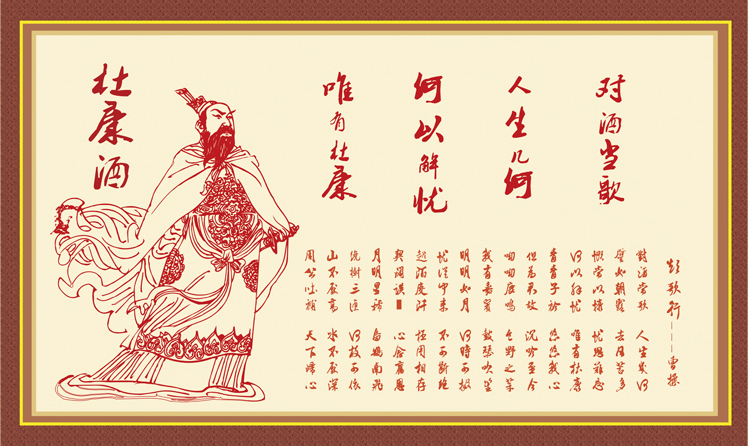 对酒当歌
人生几何
何以解忧
唯有杜康
杜康酒
短歌行——曹操
对酒当歌 人生几何
譬如朝露 去日苦多
慨当以慷 忧思难忘
何以解忧 唯有杜康
青青子衿 悠悠我心
但为君故 沉吟至今
呦呦鹿鸣 食野之苹
我有嘉宾 鼓瑟吹笙
明明如月 何时可掇
忧从中来 不可断绝
越陌度阡 枉用相存
契阔谈 心念旧恩
月明星稀 乌鹊南飞
绕树三匝 何枝可依
山不厌高 水不厌深
周公吐哺 天下归心